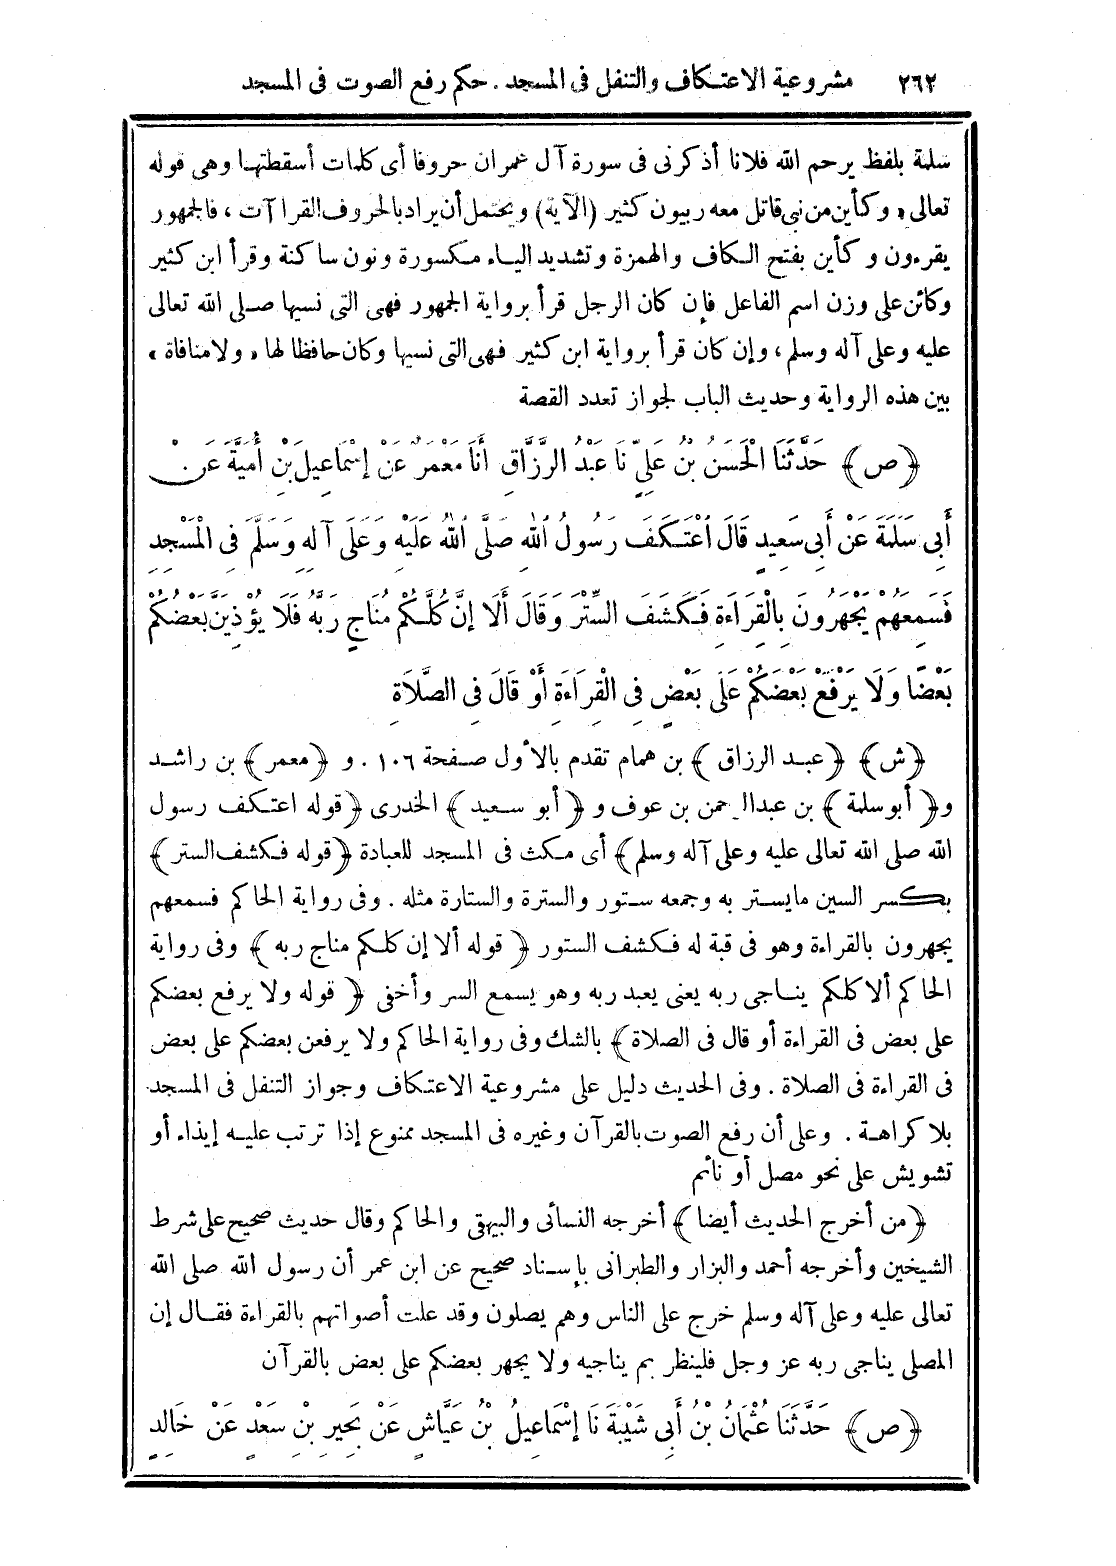 ٢٦٢ مشروعية الاعتكاف والتنفل فى المسجد . حكم رفع الصوت فى المسجد
سلمة بلفظ يرحم الله فلانا أذكرنى فى سورة آل عمران حروفا أى كلمات أسقطتها وهى قوله
تعالى « وكأين من نبى قاتل معه ربيون كثير (الآية) ويحتمل أن يراد بالحروف القراآت ، فالجمهور
يقرءون وكأين بفتح الكاف والهمزة وتشديد الياء مكسورة ونون ساكنة وقرأ ابن كثير
وكائن على وزن اسم الفاعل فإن كان الرجل قرأ برواية الجمهور فهى التى نسيها صلى الله تعالى
عليه وعلى آله وسلم ، وإن كان قرأ برواية ابن كثير فهى التى نسيها وكان حافظا لها « ولا منافاة »
بين هذه الرواية وحديث الباب لجواز تعدد القصة
﴿ص﴾ حَدَّثَنَا الْحَسَنُ بْنُ عَلِىٍّ نَا عَبْدُ الرَّزَّاقِ أَنَا مَعْمَرٌ عَنْ إِسْمَاعِيلَ بْنِ أُمَيَّةَ عَنْ
أَبِى سَلَمَةَ عَنْ أَبِى سَعِيدٍ قَالَ اعْتَكَفَ رَسُولُ اللهِ صَلَّى اللهُ عَلَيْهِ وَعَلَى آلِهِ وَسَلَّمَ فِى الْمَسْجِدِ
فَسَمِعَهُمْ يَجْهَرُونَ بِالْقِرَاءَةِ فَكَشَفَ السِّتْرَ وَقَالَ أَلَا إِنَّ كُلَّكُمْ مُنَاجٍ رَبَّهُ فَلَا يُؤْذِيَنَّ بَعْضُكُمْ
بَعْضًا وَلَا يَرْفَعْ بَعْضُكُمْ عَلَى بَعْضٍ فِى الْقِرَاءَةِ أَوْ قَالَ فِى الصَّلَاةِ
﴿ش﴾ ﴿عبد الرزاق﴾ بن همام تقدم بالأول صفحة ١٠٦ . و ﴿معمر﴾ بن راشد
و ﴿أبو سلمة﴾ بن عبد الرحمن بن عوف و ﴿أبو سعيد﴾ الخدرى ﴿قوله اعتكف رسول
الله صلى الله تعالى عليه وعلى آله وسلم﴾ أى مكث فى المسجد للعبادة ﴿قوله فكشف الستر﴾
بكسر السين ما يستر به وجمعه ستور والسترة والستارة مثله . وفى رواية الحاكم فسمعهم
يجهرون بالقراءة وهو فى قبة له فكشف الستور ﴿قوله ألا إن كلكم مناج ربه﴾ وفى رواية
الحاكم ألا كلكم يناجى ربه يعنى يعبد ربه وهو يسمع السر وأخفى ﴿قوله ولا يرفع بعضكم
على بعض فى القراءة أو قال فى الصلاة﴾ بالشك وفى رواية الحاكم ولا يرفعن بعضكم على بعض
فى القراءة فى الصلاة . وفى الحديث دليل على مشروعية الاعتكاف وجواز التنفل فى المسجد
بلا كراهة . وعلى أن رفع الصوت بالقرآن وغيره فى المسجد ممنوع إذا ترتب عليه إيذاء أو
تشويش على نحو مصل أو نائم
﴿من أخرج الحديث أيضا﴾ أخرجه النسائى والبيهقى والحاكم وقال حديث صحيح على شرط
الشيخين وأخرجه أحمد والبزار والطبرانى بإسناد صحيح عن ابن عمر أن رسول الله صلى الله
تعالى عليه وعلى آله وسلم خرج على الناس وهم يصلون وقد علت أصواتهم بالقراءة فقال إن
المصلى يناجى ربه عز وجل فلينظر بم يناجيه ولا يجهر بعضكم على بعض بالقرآن
﴿ص﴾ حَدَّثَنَا عُثْمَانُ بْنُ أَبِى شَيْبَةَ نَا إِسْمَاعِيلُ بْنُ عَيَّاشٍ عَنْ بَحِيرِ بْنِ سَعْدٍ عَنْ خَالِدِ